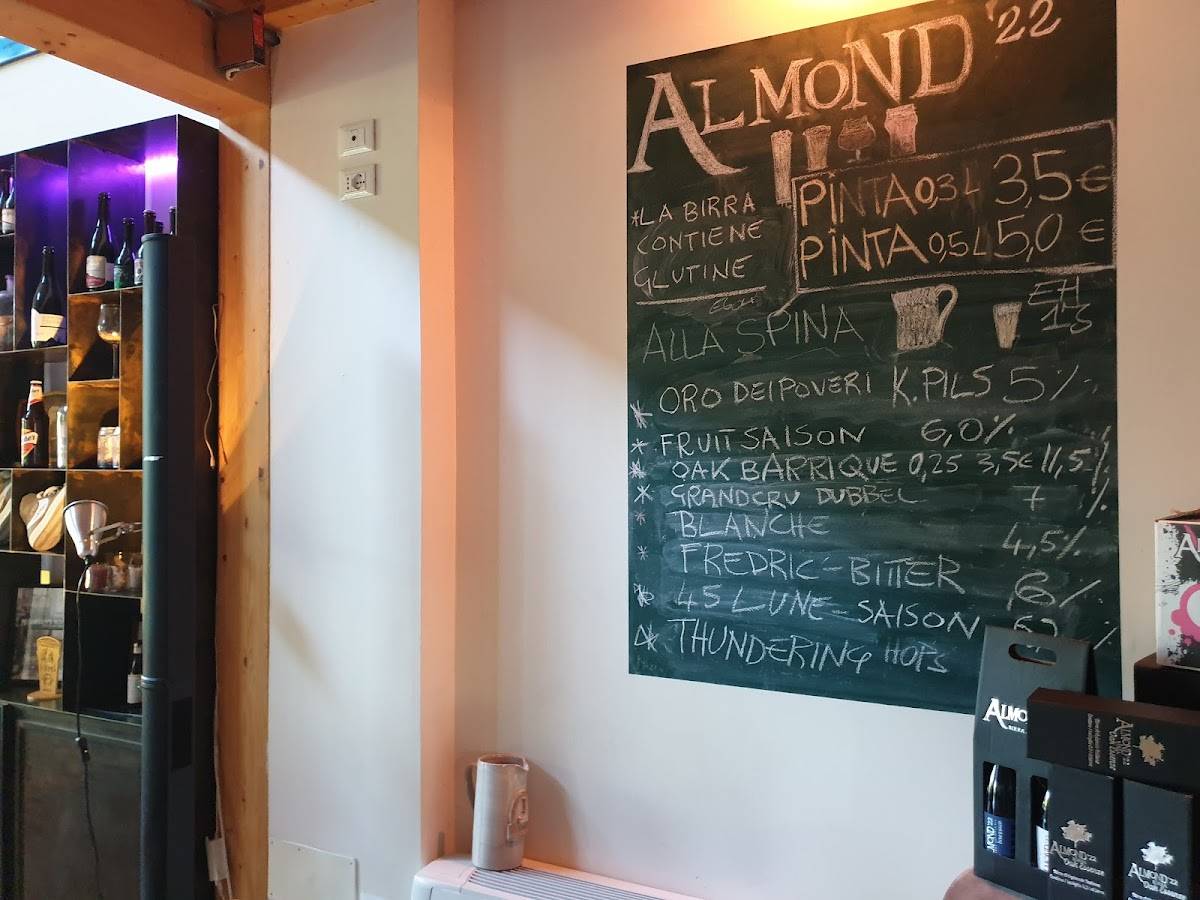 ALMOND '22
PINTA 0,3 L 3,5 €
PINTA 0,5 L 5,0 €
*LA BIRRA
CONTIENE
GLUTINE
ALLA SPINA
ORO DEI POVERI K.PILS 5%
* FRUIT SAISON 6,0%
* OAK BARRIQUE 0,25 3,5€ 11,5%
* GRANDCRU DUBBEL 7 %
* BLANCHE 4,5%
* FREDRIC - BITTER 6%
* 45 LUNE - SAISON
* THUNDERING HOPS
ALMO
ALMOND '22
ALMOND '22
ALMOND '22
MOND '22